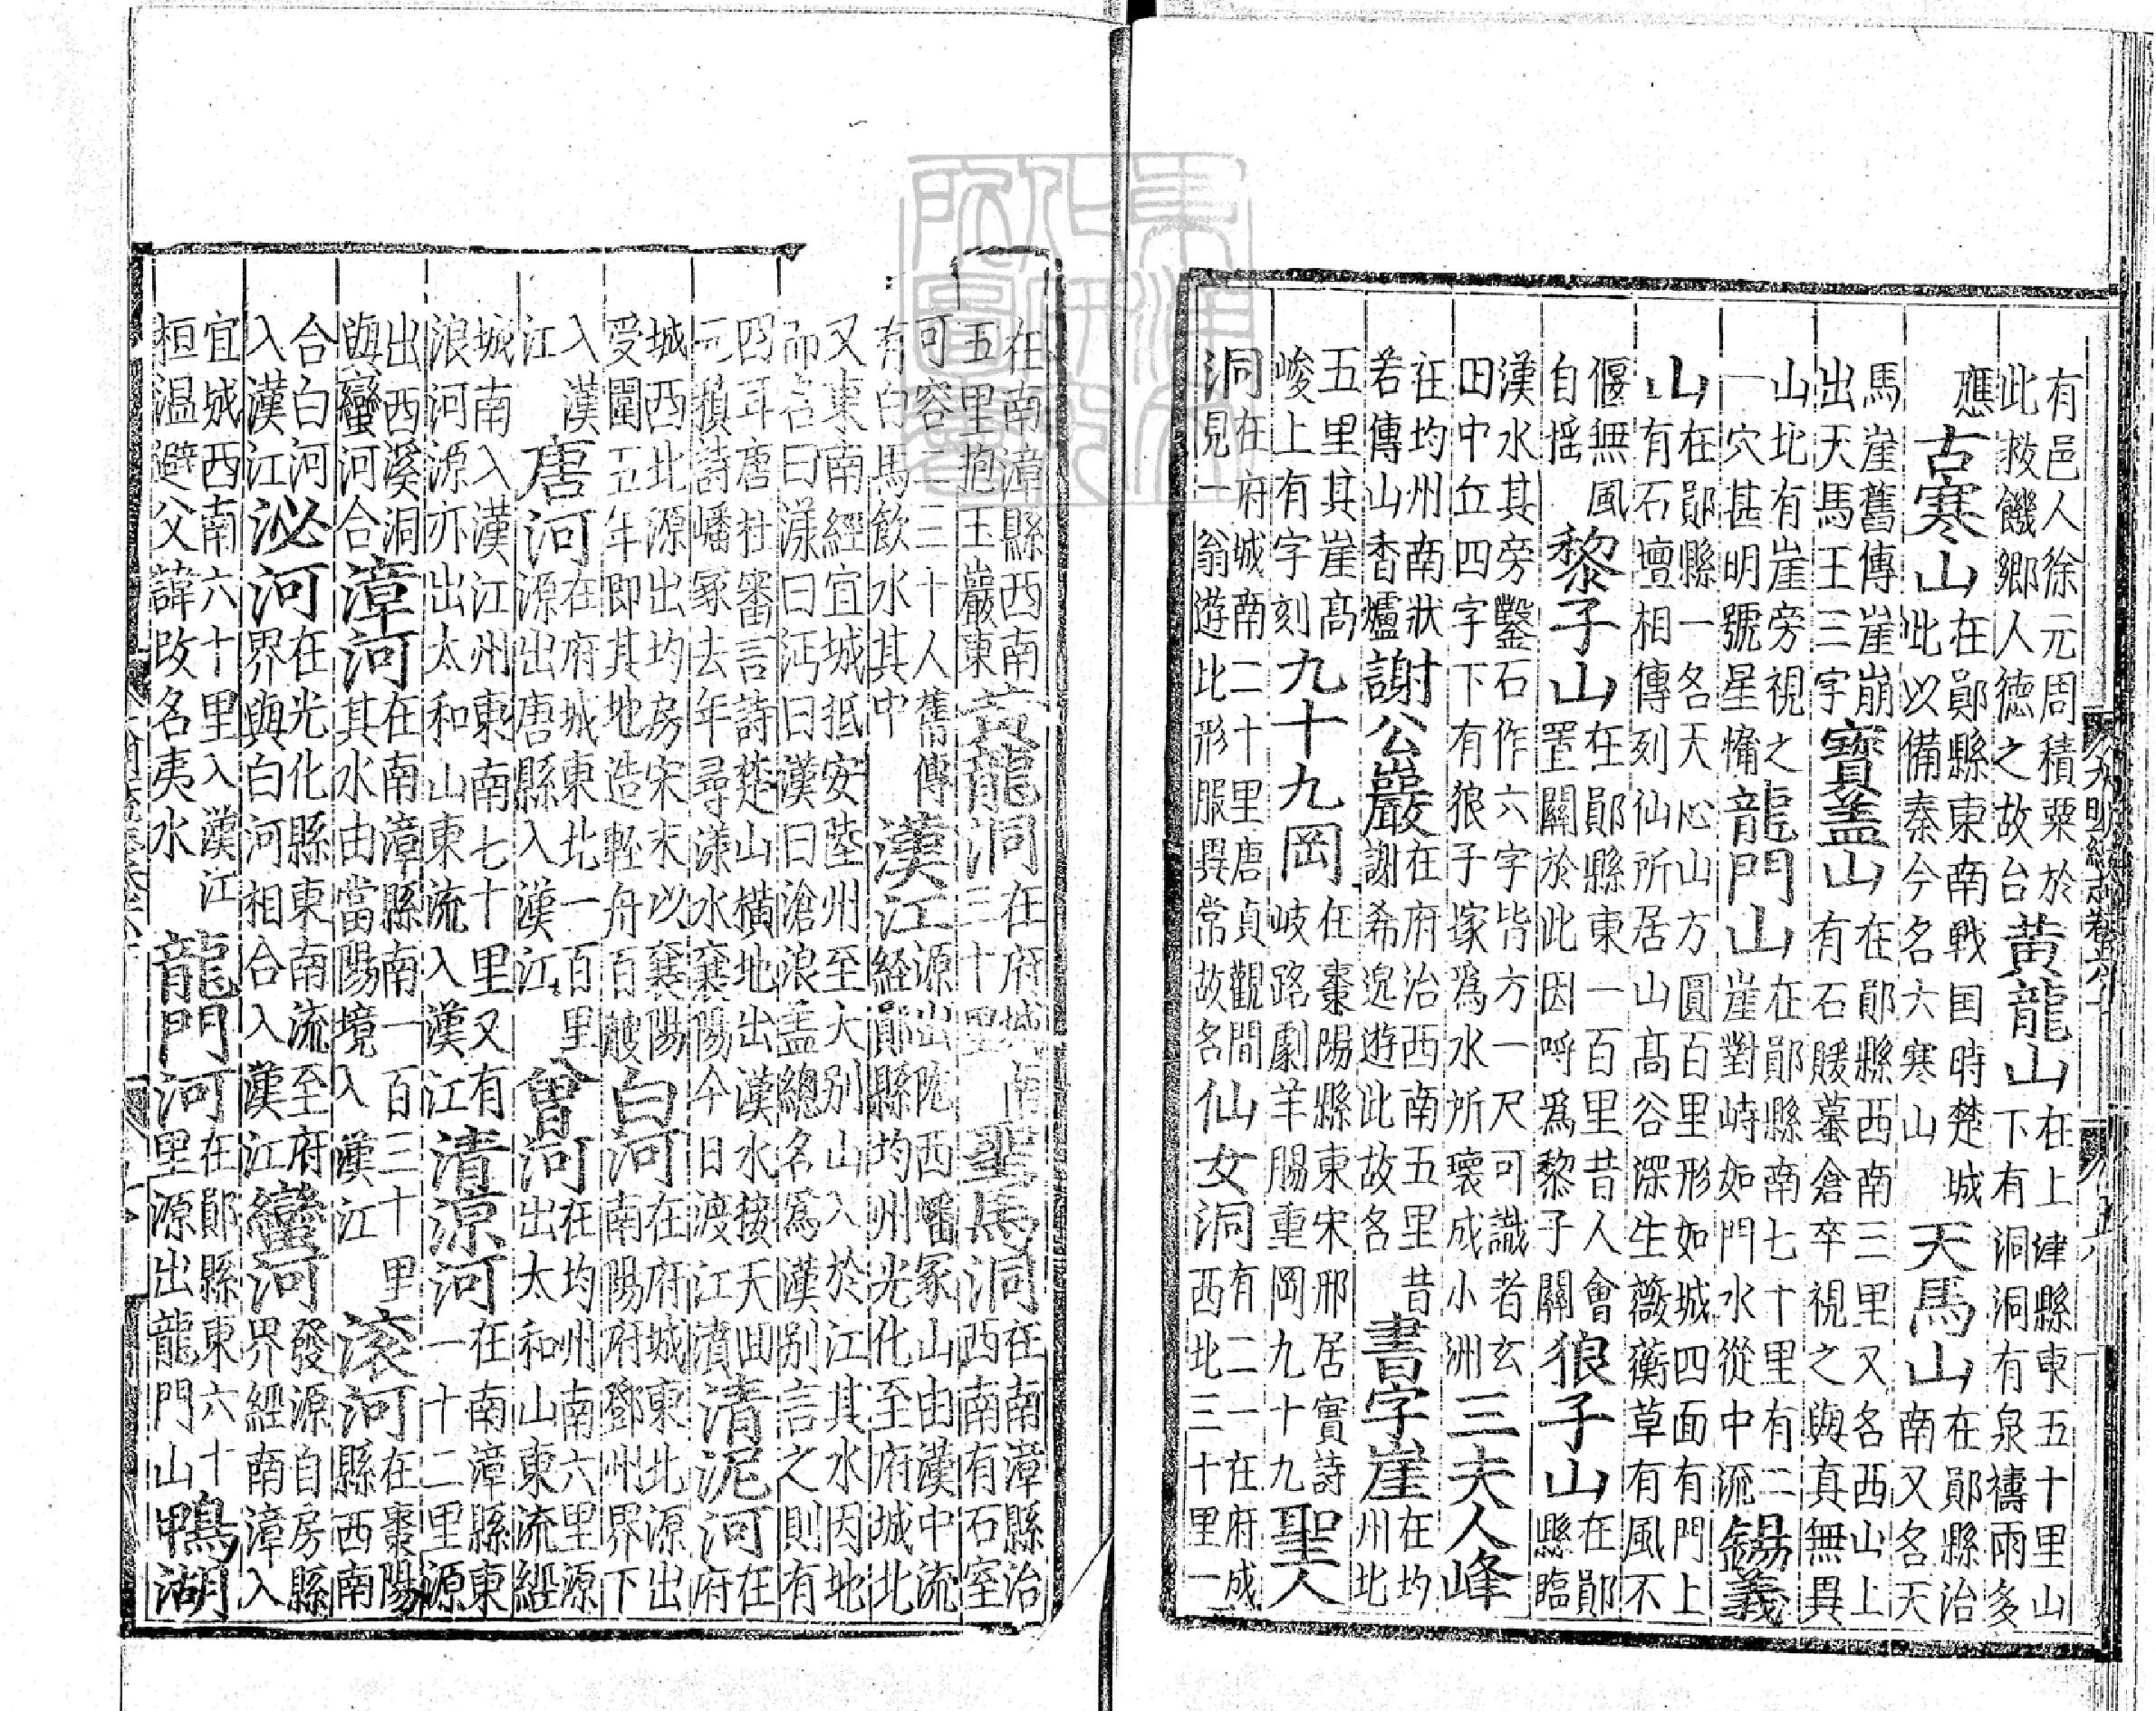 有邑人徐元周積粟於此救饑鄉人德之故台黃龍山在上津縣東五十里山下有洞洞有泉禱雨多
應古寒山在鄖縣東南戰国時楚城此以備秦今名六寒山天馬山在鄖縣治南又名天
馬崖舊傳崖崩出天馬王三字寶盖山在鄖縣西南三里又名西山上有石蟇倉卒視之與真無異
山北有崖旁視之一穴甚明號星牗龍門山在鄖縣南七十里有二崖對峙如門水從中流錫義
山在鄖縣一名天心山方圓百里形如城四面有門上有石壇相傳列仙所居山高谷深生薇蘅草有風不
偃無風自摇黎子山在鄖縣東一百里昔人會置關於此因呼爲黎子關狼子山在鄖縣臨
漢水其旁鑿石作六字皆方一尺可識者玄田中丘四字下有狼子塚爲水所壞成小洲三夫人峰
在均州南狀若傳山香爐謝公巖在府治西南五里昔謝希逸遊此故名書字崖在均州北
五里其崖高峻上有字刻九十九岡在棗陽縣東宋邢居實詩岐路劇羊腸重岡九十九聖人
洞在府城南二十里唐貞觀間見一翁遊此形服異常故名仙女洞有二一在府成西北三十里一
在南漳縣西南五里抱玉巖東黃龍洞在府城南三十里聖馬洞在南漳縣治西南有石室
可容二三十人舊傳有白馬飲水其中漢江源出陇西嶓冢山由漢中流経鄖縣均州光化至府城北
又東南經宜城抵安陸州至大别山入於江其水因地而名曰漾曰沔曰漢曰滄浪盖總名爲漢别言之則有
四耳唐杜審言詩楚山橫地出漢水接天回元稹詩嶓冢去年尋漾水襄陽今日渡江濆清泥河在府
城西北源出均房宋末以襄陽受圍五年即其地造輕舟百艘白河在府城東北源出南陽府鄧州界下
入漢江唐河在府城東北一百里源出唐縣入漢江曾河在均州南六里源出太和山東流經
城南入漢江州東南七十里又有浪河源亦出太和山東流入漢江清凉河在南漳縣東一十二里源
出西溪洞與蠻河合漳河在南漳縣南一百三十里其水由當陽境入漢江滚河在棗陽縣西南
合白河入漢江泌河在光化縣東南流至府界與白河相合入漢江蠻河發源自房縣界經南漳入
宜城西南六十里入漢江桓溫避父諱改名夷水龍門河在鄖縣東六十里源出龍門山鴨湖